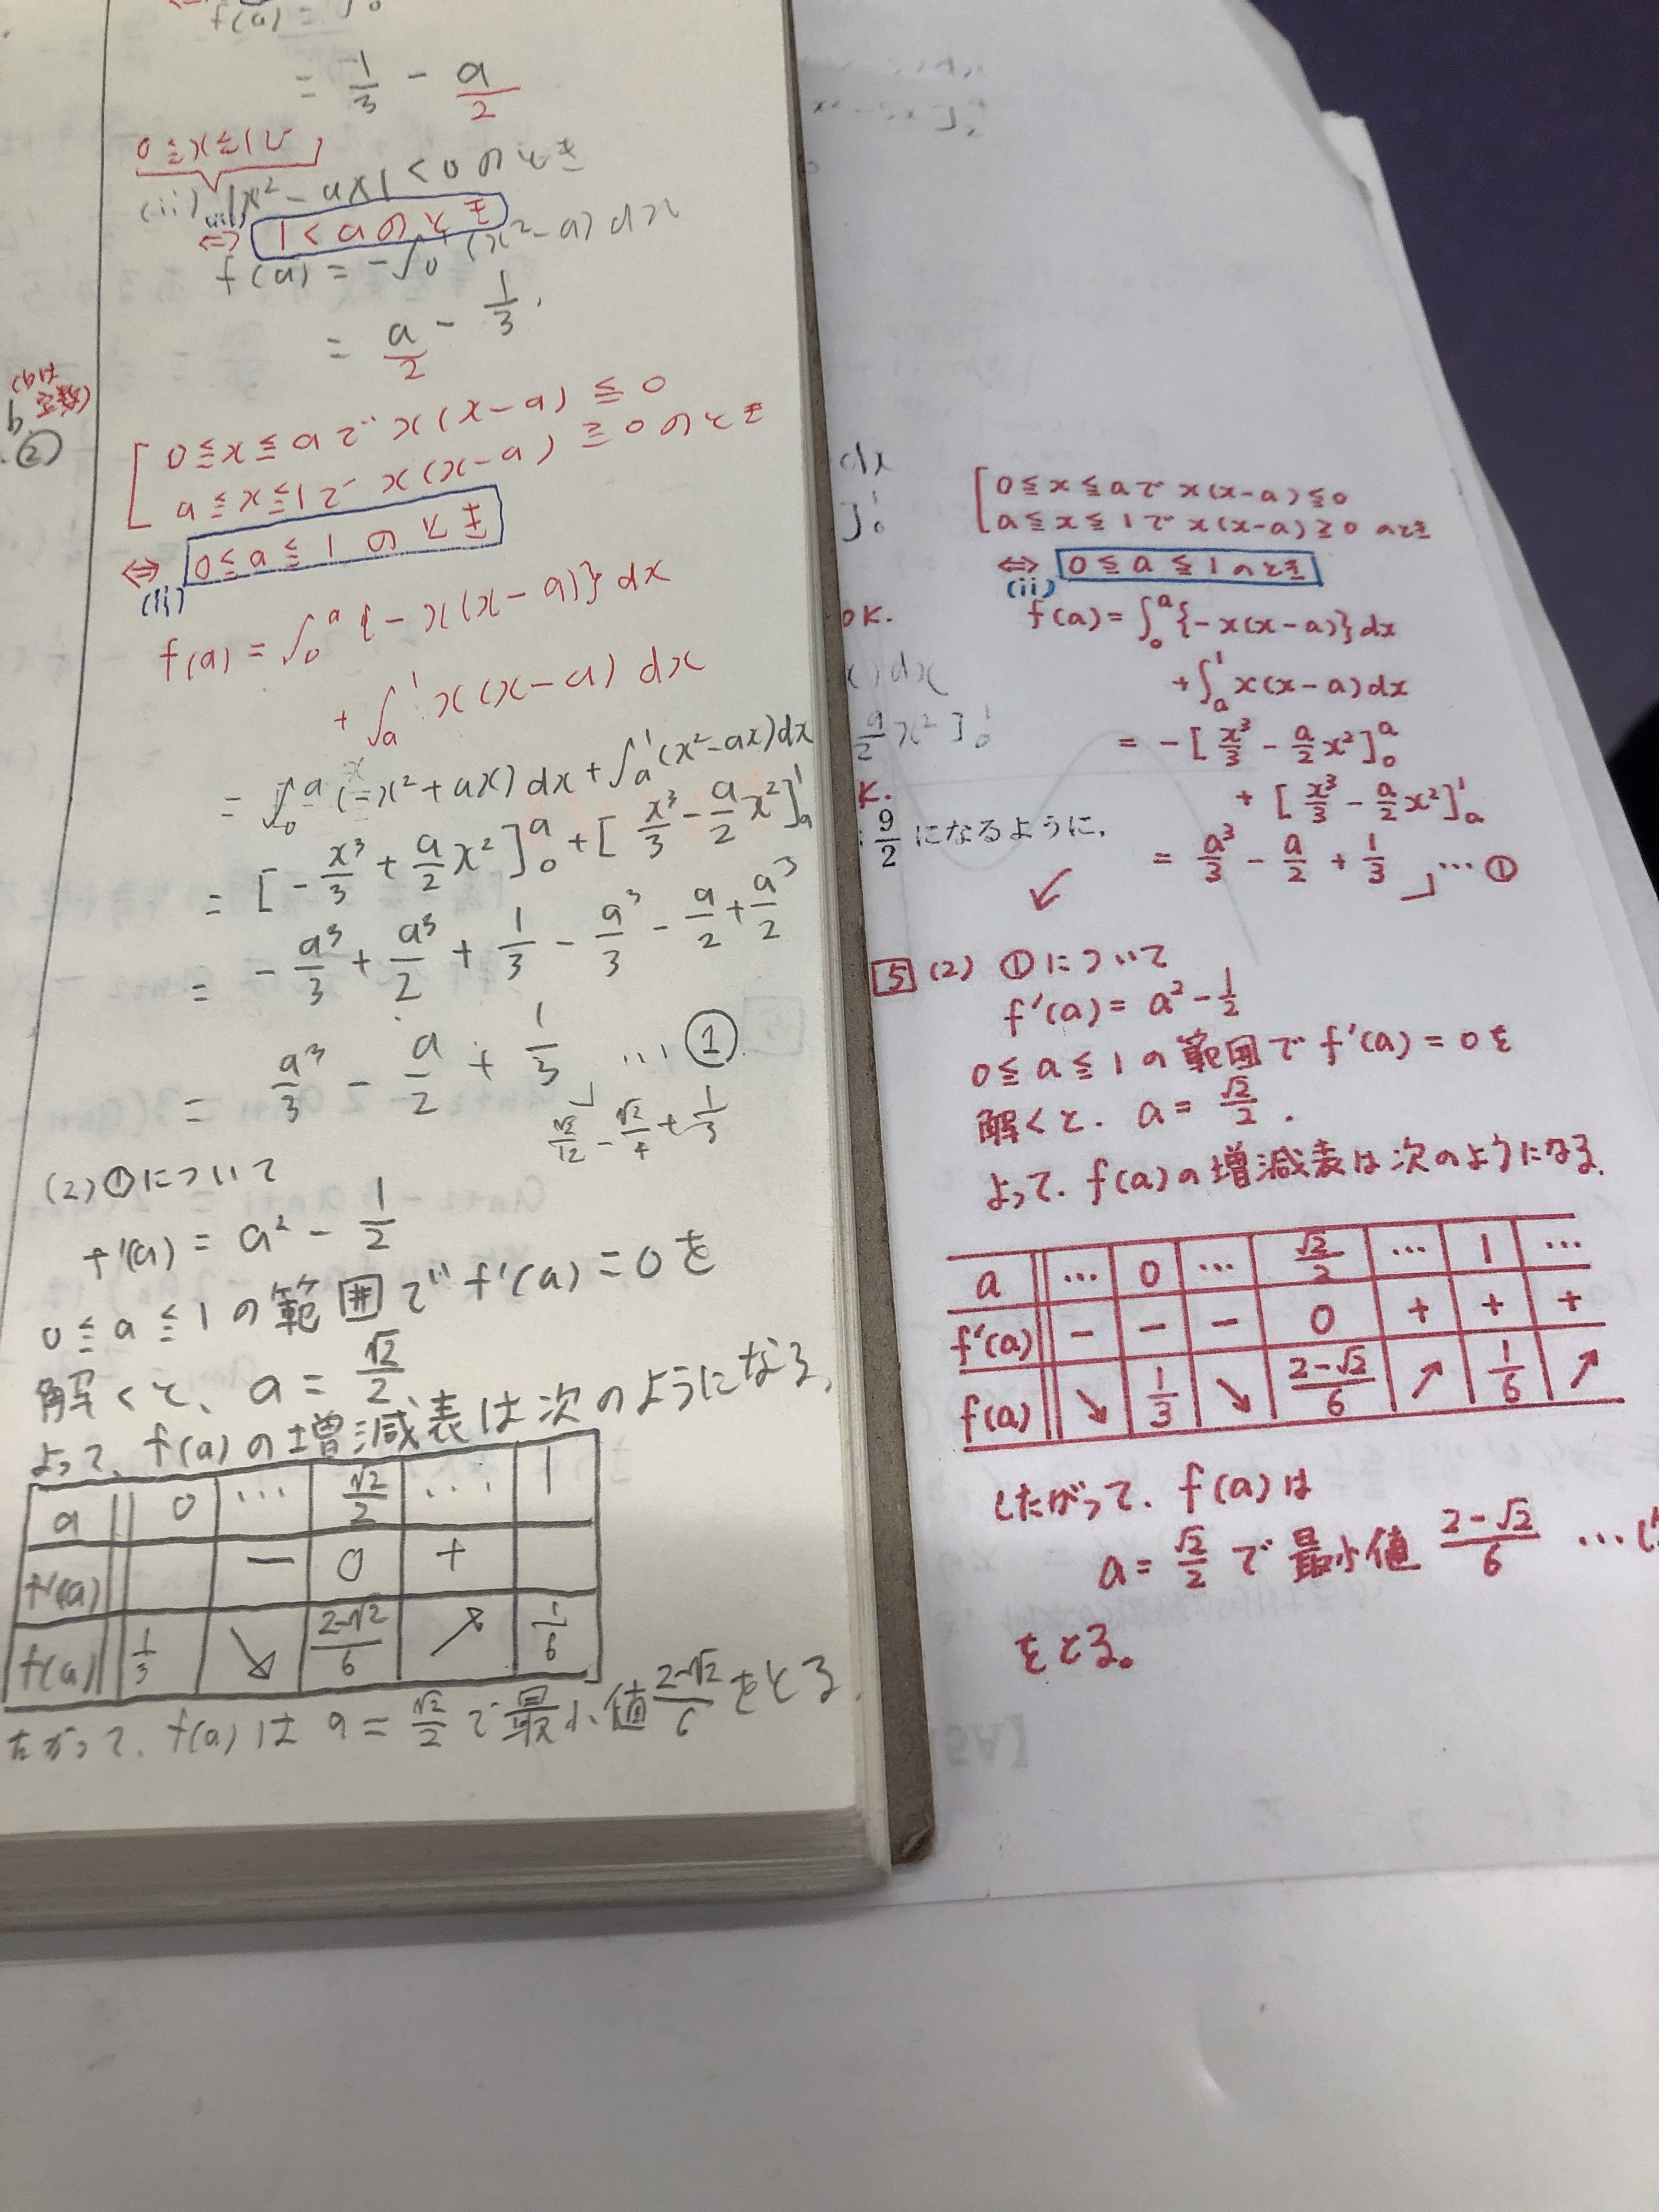 f(a) = ∫0
= 1/3 - a/2
0≦x≦1で
(ii) |x² - ax| < 0 のとき
(iii)
⇔ 1 < a のとき
f(a) = -∫₀¹ (x² - a) dx
= a/2 - 1/3.
②
[ 0≦x≦a で x(x-a) ≦ 0
a≦x≦1で x(x-a) ≧ 0 のとき
⇔ 0≦a≦1 のとき
(ii)
f(a) = ∫₀ᵃ {-x(x-a)} dx
+ ∫ₐ¹ x(x-a) dx
= ∫₀ᵃ (-x²+ax) dx + ∫ₐ¹ (x²-ax) dx
= [-x³/3 + a/2 x²]₀ᵃ + [x³/3 - a/2 x²]ₐ¹
= -a³/3 + a³/2 + 1/3 - a³/3 - a/2 + a³/2
= a³/3 - a/2 + 1/3 … ①
√2/12 - √2/4 + 1/3
(2) ①について
f'(a) = a² - 1/2
0≦a≦1の範囲で f'(a) = 0を
解くと、a = √2/2
よって、f(a)の増減表は次のようになる、
a 0 … √2/2 … 1
f'(a) - 0 +
f(a) 1/3 ↘ (2-√2)/6 ↗ 1/6
たがって、f(a)は a = √2/2 で最小値 (2-√2)/6 をとる.
dx
]₀¹
OK.
) dx
a/2 x²]₀¹
K.
9/2 になるように,
[ 0≦x≦aで x(x-a)≦0
a≦x≦1で x(x-a)≧0 のとき
⇔ 0≦a≦1のとき
(ii)
f(a) = ∫₀ᵃ {-x(x-a)} dx
+ ∫ₐ¹ x(x-a) dx
= -[x³/3 - a/2 x²]₀ᵃ
+ [x³/3 - a/2 x²]ₐ¹
= a³/3 - a/2 + 1/3 … ①
5 (2) ①について
f'(a) = a² - 1/2
0≦a≦1の範囲で f'(a) = 0を
解くと. a = √2/2.
よって. f(a)の増減表は次のようになる.
a … 0 … √2/2 … 1 …
f'(a) - - - 0 + + +
f(a) ↘ 1/3 ↘ (2-√2)/6 ↗ 1/6 ↗
したがって. f(a)は
a = √2/2 で 最小値 (2-√2)/6 …
をとる。